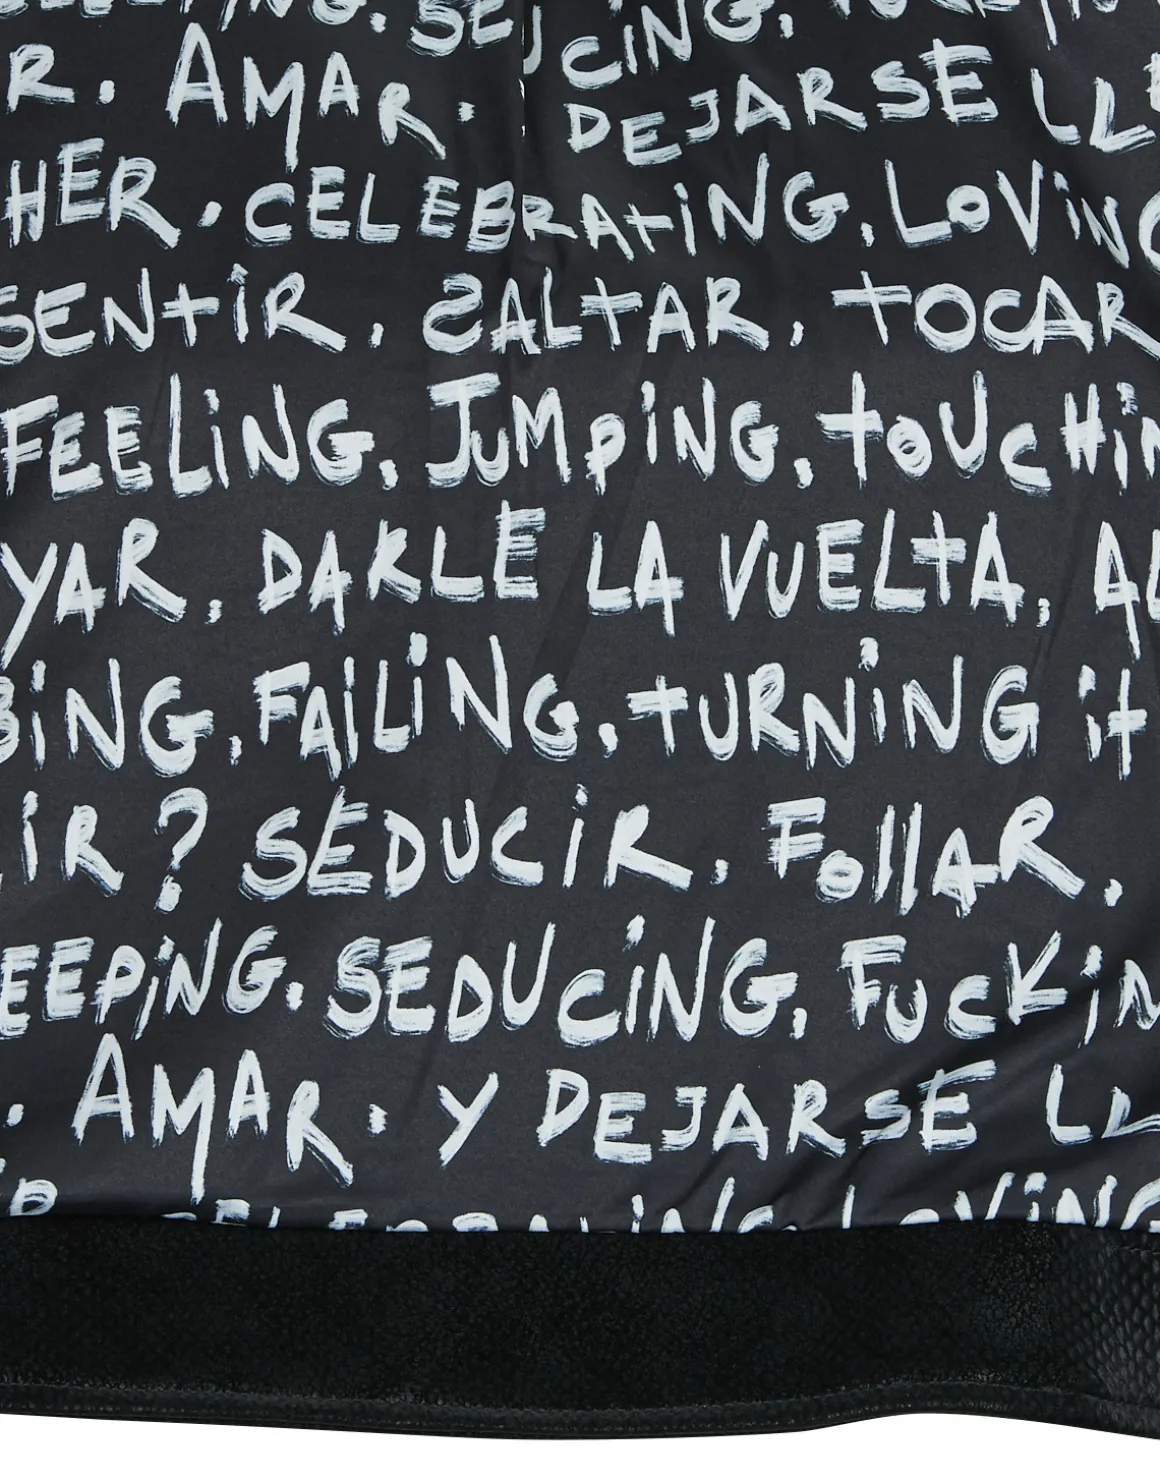 SEDUCING.
R. AMAR. DEJARSE LLE
HER. CELEBRATING, LOVING
SENTIR, SALTAR, TOCAR
FEELING, JUMPING, TOUCHIN
YAR, DARLE LA VUELTA, AL
BING, FAILING, TURNING it
IR? SEDUCIR, FOLLAR,
EEPING. SEDUCING, FUCKIN
. AMAR. Y DEJARSE LL
CELEBRATING LOVING